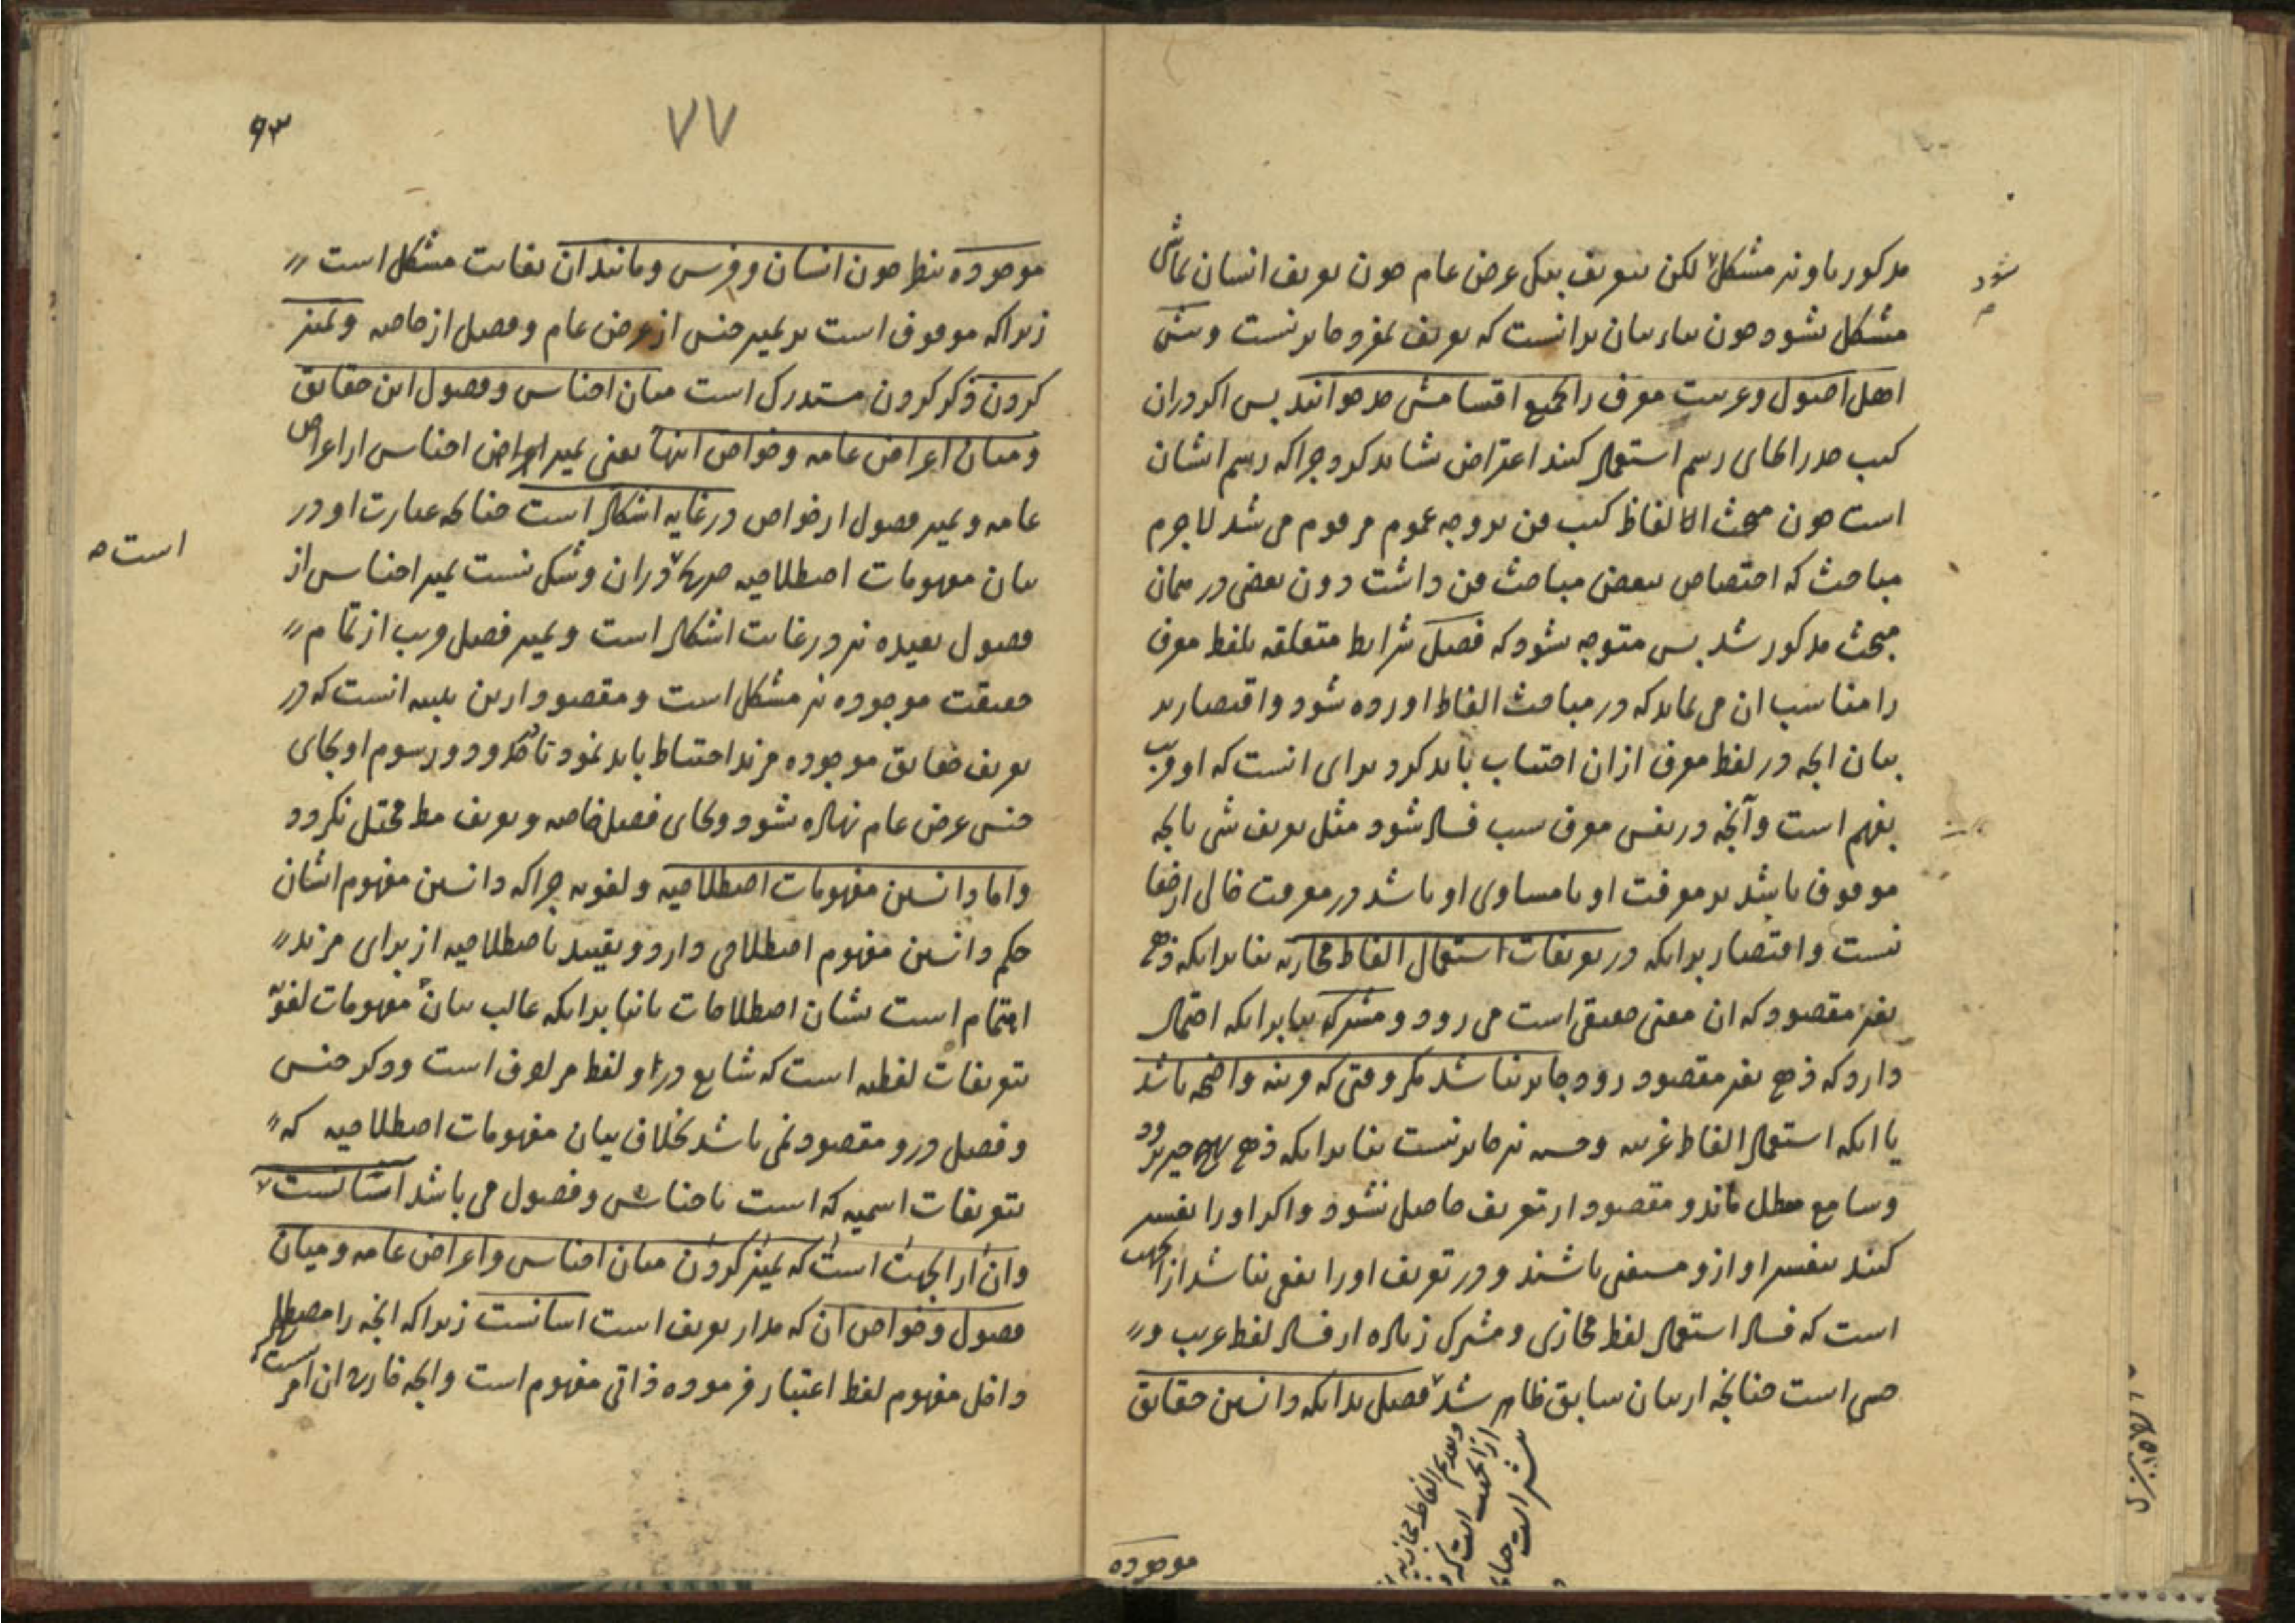 مذکور باو نیز مشکل لکن تعریف بیکی عرض عام چون تعریف انسان بماشی
شود
مشکل نشود چون بناء بیان برانست که تعریف بمفرد جایز نیست و بیشتر
اهل اصول و عربیت معرف را بجمیع اقسامش حد خوانند پس اکر دران
کتب حد را بجای رسم استعمال کنند اعتراض نشاید کرد چراکه رسم ایشان
است چون مبحث الالفاظ کتب فن بر وجه عموم مرقوم می شد لاجرم
مباحث که اختصاص ببعض مباحث فن داشت دون بعضی در همان
مبحث مذکور شد پس متوجه نشود که فصل شرایط متعلقه بلفظ معرف
را مناسب ان می نماید که در مباحث الفاظ اورده شود و اقتصار بر
بیان انچه در لفظ معرف ازان اجتناب باید کرد برای انست که او قریب
بفهم است و آنچه در نفس معرف سبب فساد شود مثل تعریف شی بانچه
موقوف باشد بر معرفت او یا مساوی او باشد در معرفت خالی از خفا
نیست و اقتصار بدانکه در تعریفات استعمال الفاظ مجازیه بنا برانکه ذهن
بغیر مقصود که ان معنی حقیقی است می رود و مشترکه بنا برانکه احتمال
دارد که ذهن بغیر مقصود رود جایز نباشد مکر وقتی که قرینه واضحه باشد
یا انکه استعمال الفاظ غریبه وحشیه نیز جایز نیست بنا برانکه ذهن
وسامع معطل ماند و مقصود از تعریف حاصل نشود و اکر او را تفسیر
کنند بتفسیر او ازو مستغنی باشند و در تعریف او را نفعی نباشد ازینجهت
است که فساد استعمال لفظ مجازی و مشترک زیاده از فساد لفظ غریب و
حشی است چنانچه از بیان سابق ظاهر شد فصل بدانکه دانستن حقایق
وتقدیم الفاظ مجازیه
ازانجهت است که
موجوده
۷۷
۹۳
موجوده بنظر چون انسان و فرس و مانند ان بغایت مشکل است
زیراکه موقوف است بر تمییز جنس از عرض عام و فصل از خاصه و تمییز
کردن ذکر کردن مستدرک است میان اجناس و فصول این حقایق
و میان اعراض عامه و خواص اینها یعنی تمییز اجناس از اعراض
عامه و تمییز فصول از خواص در غایه اشکال است چنانکه عبارت او در
است
بیان مفهومات اصطلاحیه دران و شکی نیست تمییز اجناس از
فصول بعیده نیز در غایت اشکال است و تمییز فصل قریب از تمام
حقیقت موجوده نیز مشکل است و مقصود ازین تنبیه انست که در
تعریف حقایق موجوده مزید احتیاط باید نمود تا حدود و رسوم او بجای
جنس عرض عام نهاده نشود و بجای فصل خاصه و تعریف مختل نکردد
و اما دانستن مفهومات اصطلاحیه و لغویه چراکه دانستن مفهوم ایشان
حکم دانستن مفهوم اصطلاحی دارد و تقیید باصطلاحیه از برای مزید
اهتمام است بشان اصطلاحات یا بنا برانکه غالب بیان مفهومات لغویه
بتعریفات لفظیه است که شایع درو لفظ مرادف است و ذکر جنس
و فصل درو مقصود نمی باشد بخلاف بیان مفهومات اصطلاحیه که
بتعریفات اسمیه که است باجناس و فصول می باشد اسانست
وان ازانجهت است که تمییز کردن میان اجناس و اعراض عامه و میان
فصول و خواص ان که مدار تعریف است اسانست زیراکه انچه را مصطلح
داخل مفهوم لفظ اعتبار فرموده ذاتی مفهوم است و انچه خارج ان امر
است